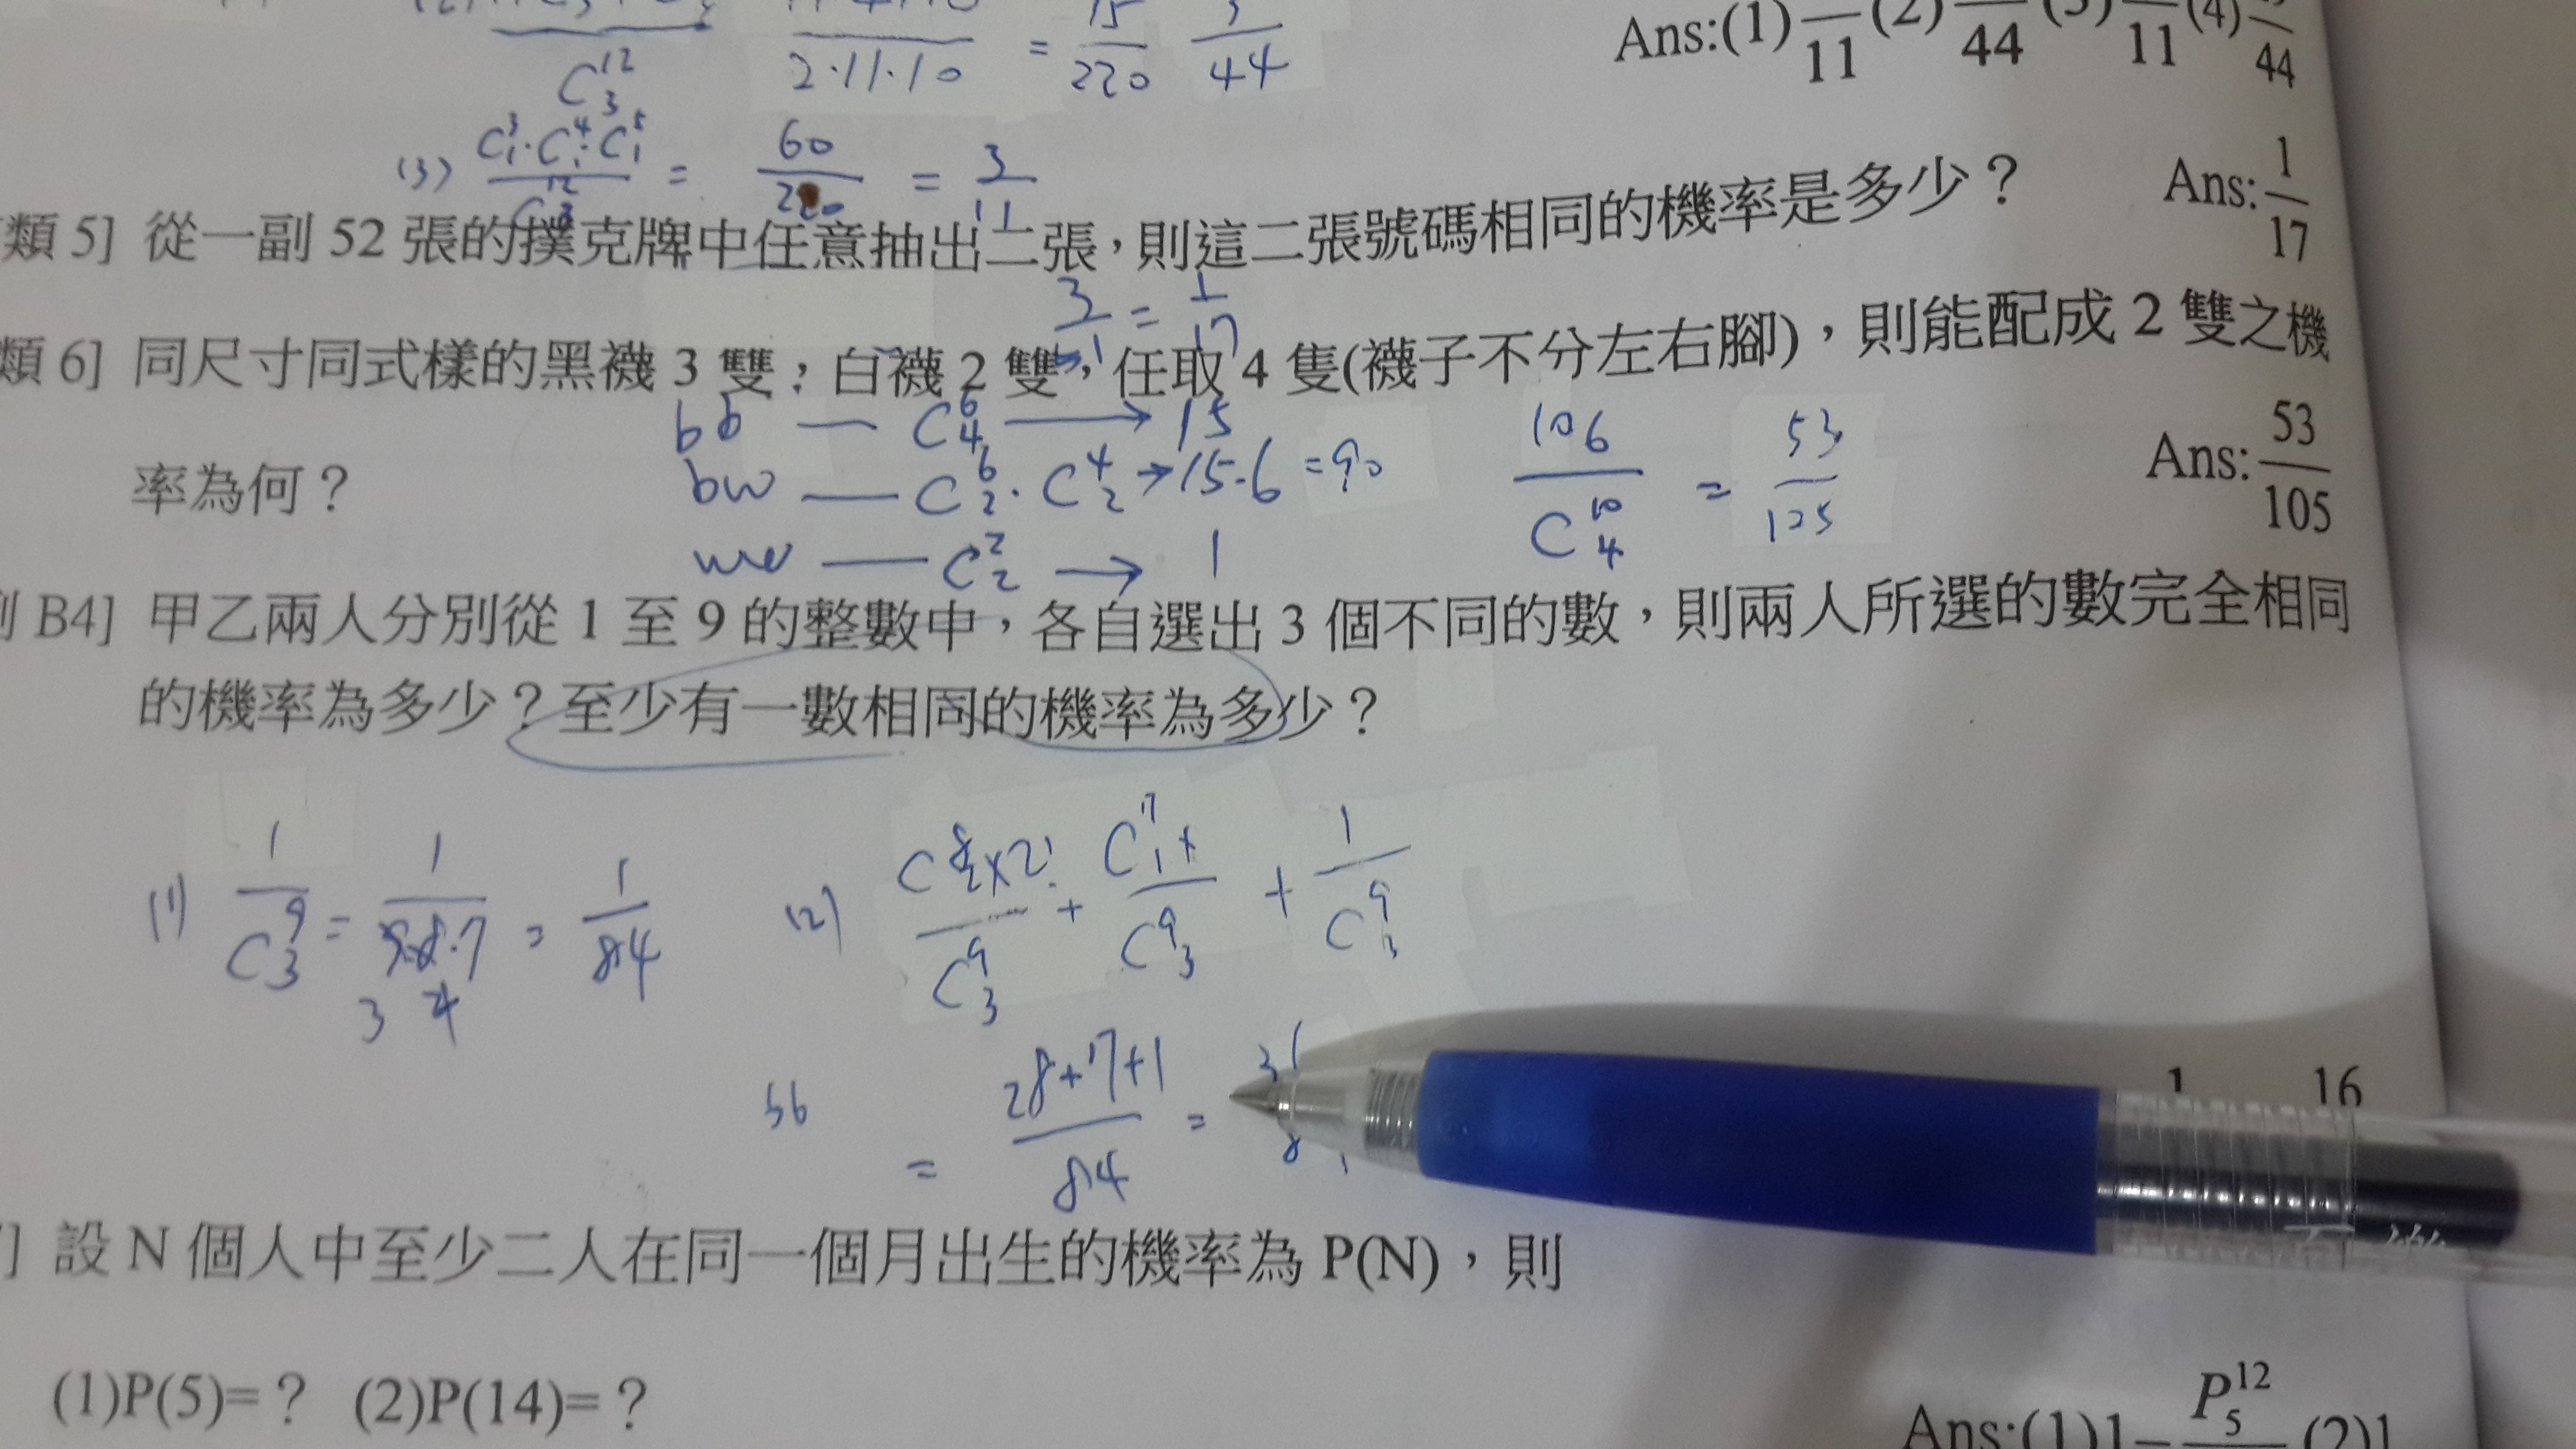 C₃¹² 2·11·10 = 15/220 3/44
Ans:(1) /11 (2) /44 (3) /11 (4) /44
(3) C₁³·C₁⁴·C₁⁵ / C₃¹² = 60/220 = 3/11
類 5] 從一副 52 張的撲克牌中任意抽出二張,則這二張號碼相同的機率是多少? Ans: 1/17
3/51 = 1/17
類 6] 同尺寸同式樣的黑襪 3 雙;白襪 2 雙,任取 4 隻(襪子不分左右腳),則能配成 2 雙之機
率為何? Ans: 53/105
bb — C₄⁶ → 15
bw — C₂⁶·C₂⁴ → 15·6 = 90
ww — C₂² → 1
106/C₄¹⁰ = 53/105
B4] 甲乙兩人分別從 1 至 9 的整數中,各自選出 3 個不同的數,則兩人所選的數完全相同
的機率為多少?至少有一數相同的機率為多少?
(1) 1/C₃⁹ = 1/9·8·7 = 1/84
3 4
(2) C₂⁸×2!/C₃⁹ + C₁⁷×/C₃⁹ + 1/C₃⁹
56 = 28+7+1/84 =
1 16
] 設 N 個人中至少二人在同一個月出生的機率為 P(N),則
(1)P(5)=? (2)P(14)=?
Ans:(1)1− P₅¹² (2)1